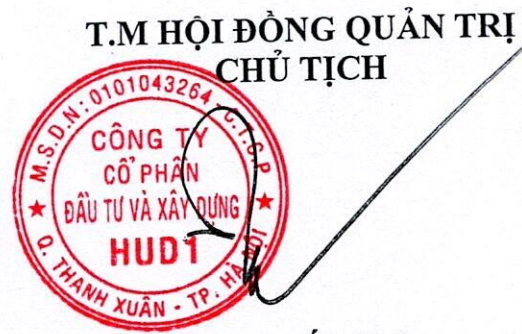 T.M HỘI ĐỒNG QUẢN TRỊ
CHỦ TỊCH
M.S.D.N: 0101043264 - C.T.C.P
CÔNG TY
CỔ PHẦN
ĐẦU TƯ VÀ XÂY DỰNG
HUD1
Q. THANH XUÂN - TP. HÀ NỘI